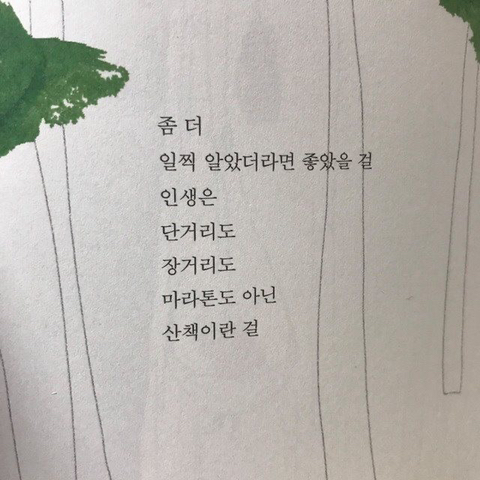 좀 더
일찍 알았더라면 좋았을 걸
인생은
단거리도
장거리도
마라톤도 아닌
산책이란 걸